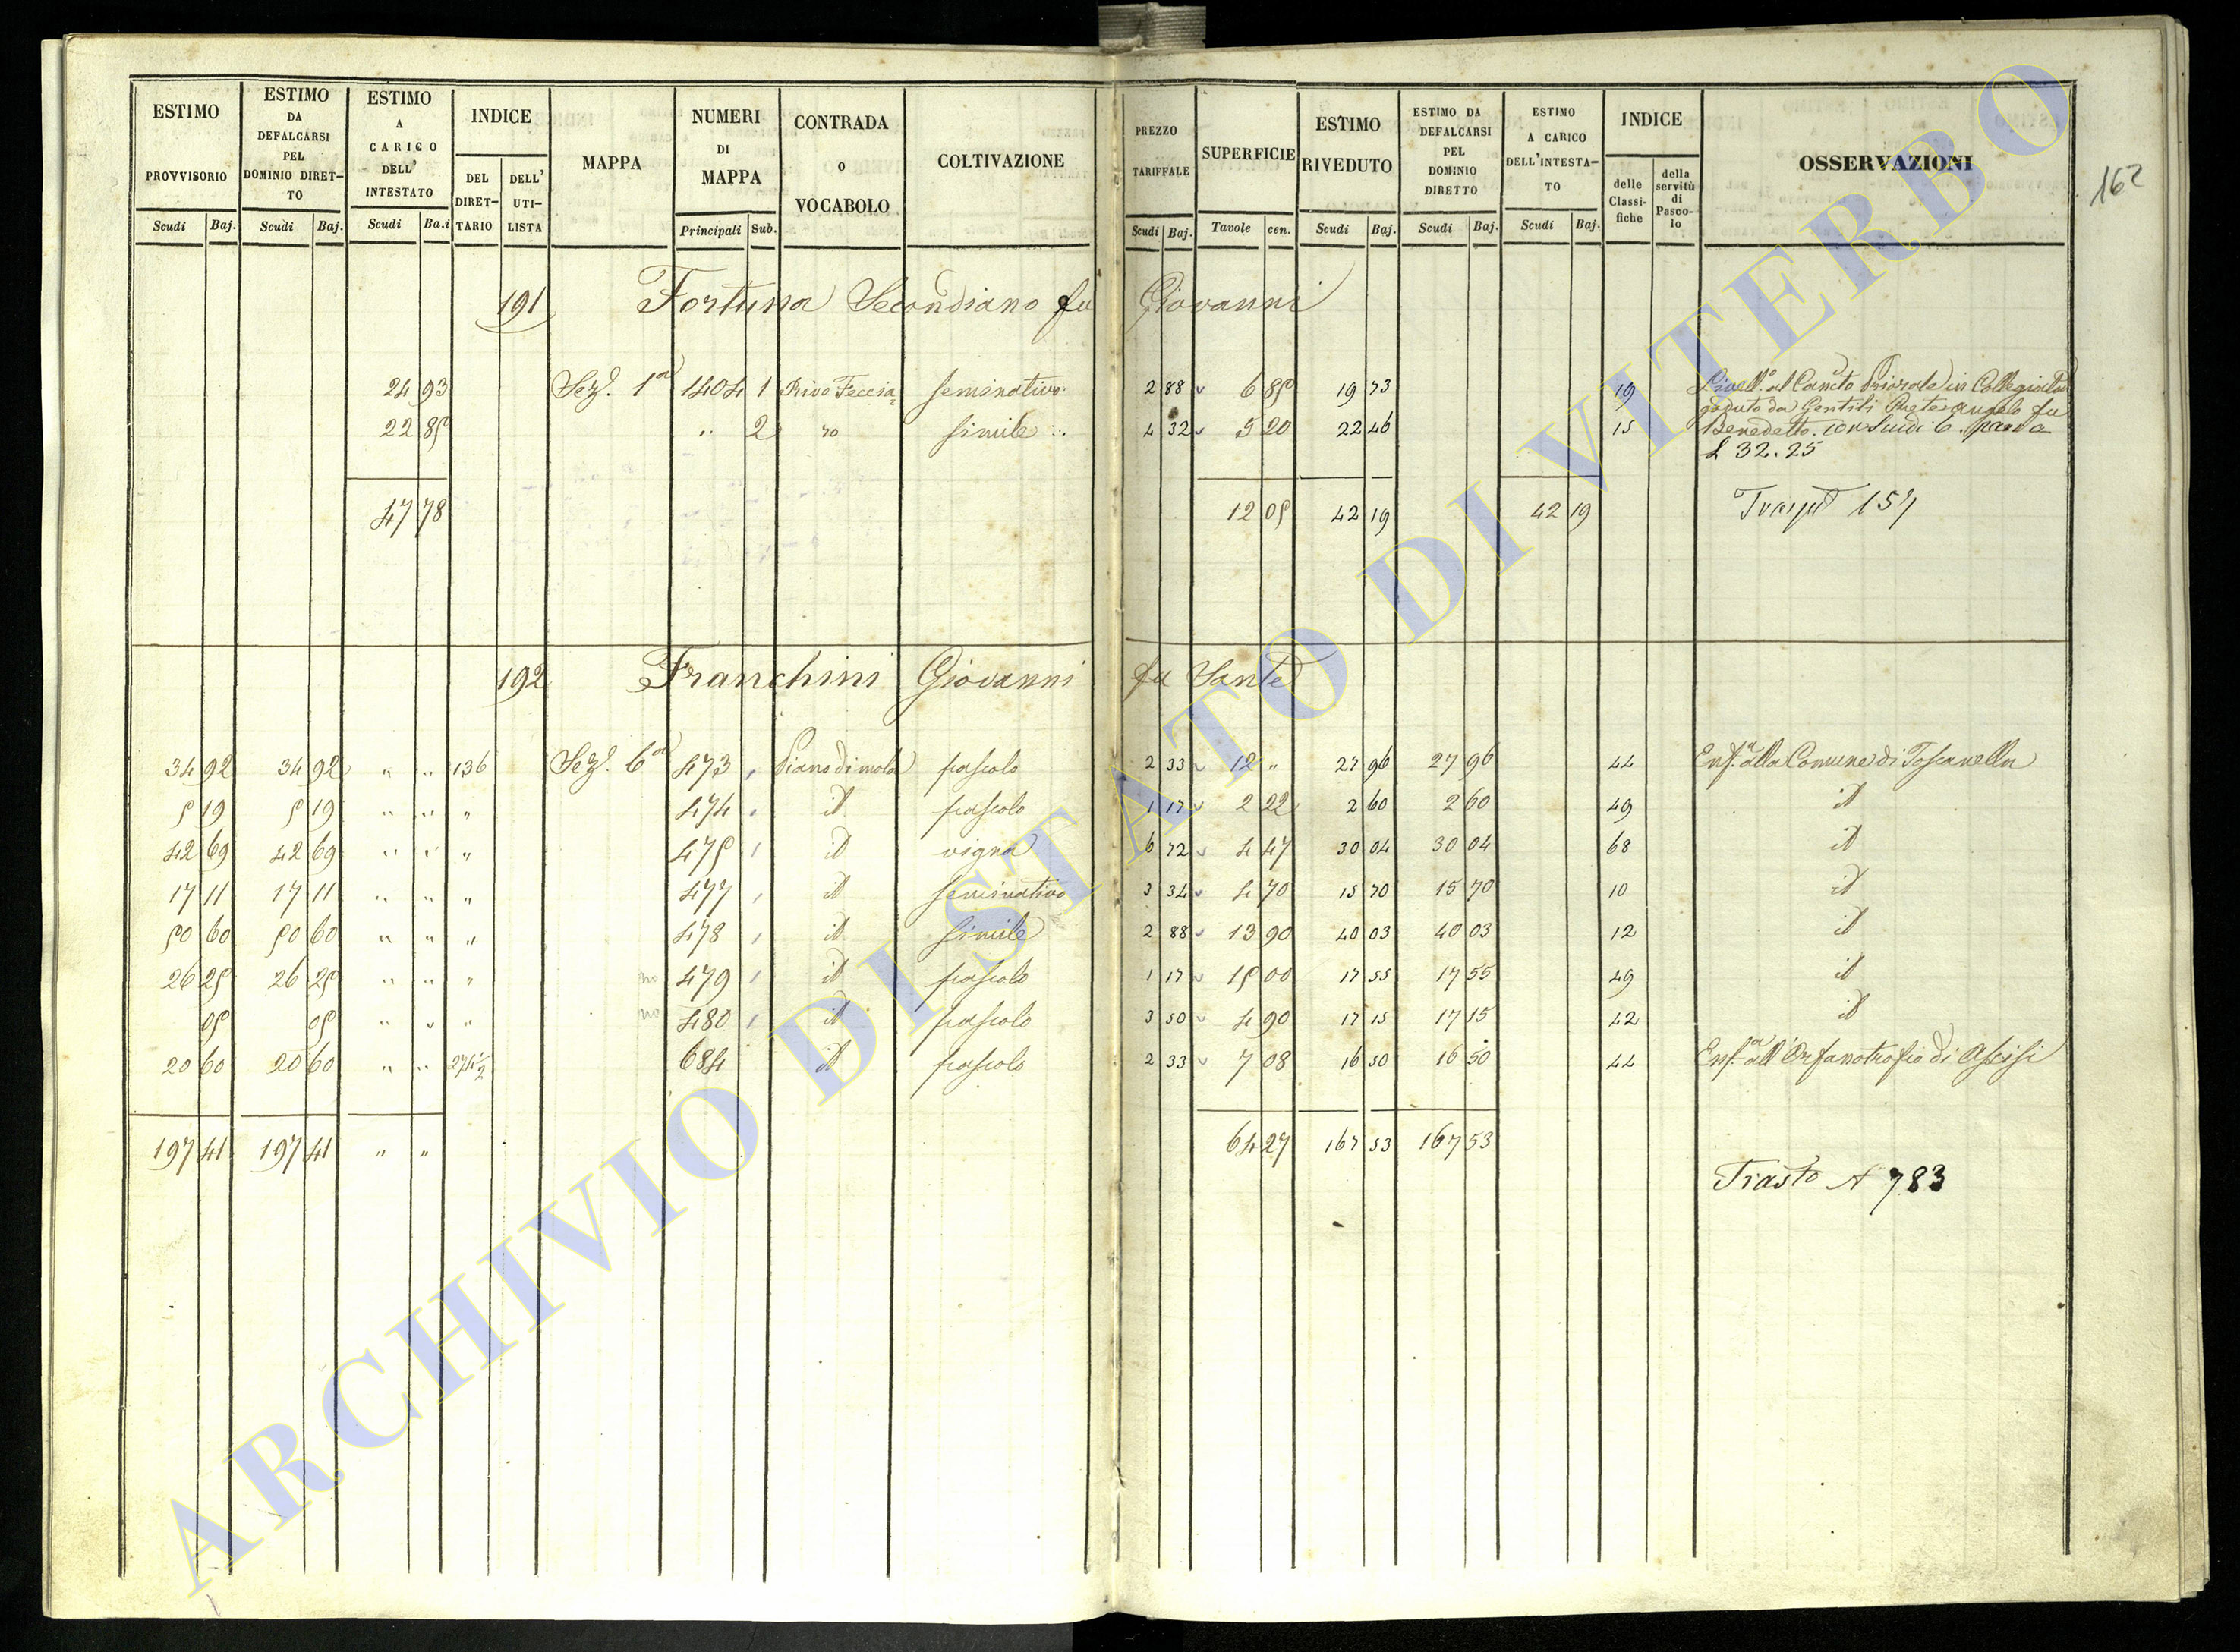 162
ESTIMO PROVVISORIO Scudi Baj. | ESTIMO DA DEFALCARSI PEL DOMINIO DIRETTO Scudi Baj. | ESTIMO A CARICO DELL' INTESTATO Scudi Ba.i | INDICE DEL DIRETTARIO DELL' UTILISTA | MAPPA | NUMERI DI MAPPA Principali Sub. | CONTRADA O VOCABOLO | COLTIVAZIONE | PREZZO TARIFFALE Scudi Baj. | SUPERFICIE Tavole cen. | ESTIMO RIVEDUTO Scudi Baj. | ESTIMO DA DEFALCARSI PEL DOMINIO DIRETTO Scudi Baj. | ESTIMO A CARICO DELL'INTESTATO Scudi Baj. | INDICE delle Classifiche della servitù di Pascolo | OSSERVAZIONI
191 Fortuna Secondiano fu Giovanni
24 93 Sez. 1a 1404 1 Rivo Feccia seminativo 2 88 6 85 19 73 19 Livello al Canto Priorale in Collegiata
goduto da Gentili Prete Angelo fu
22 85 " 2 simile 4 32 5 20 22 46 15 Benedetto. con Scudi 6. pari a
£ 32.25
47 78 12 05 42 19 42 19 157
192 Franchini Giovanni fu Sante
34 92 34 92 " " 136 Sez. 6a 473 Piano di mola pascolo 2 33 12 " 27 96 27 96 44 Enf.a alla Comune di Toscanella
5 19 5 19 " " " 474 id pascolo 1 17 2 22 2 60 2 60 49 id
42 69 42 69 " " " 475 id vigna 6 72 4 47 30 04 30 04 68 id
17 11 17 11 " " " 477 id seminativo 3 34 4 70 15 70 15 70 10 id
50 60 50 60 " " " 478 id simile 2 88 13 90 40 03 40 03 12 id
26 25 26 25 " " " no 479 id pascolo 1 17 15 00 17 55 17 55 49 id
05 05 " " " no 480 id pascolo 3 50 4 90 17 15 17 15 42 id
20 60 20 60 " " 274½ 684 id pascolo 2 33 7 08 16 50 16 50 44 Enf.a all'Orfanotrofio di Assisi
197 41 197 41 " " 64 27 167 53 167 53
783
ARCHIVIO DI STATO DI VITERBO